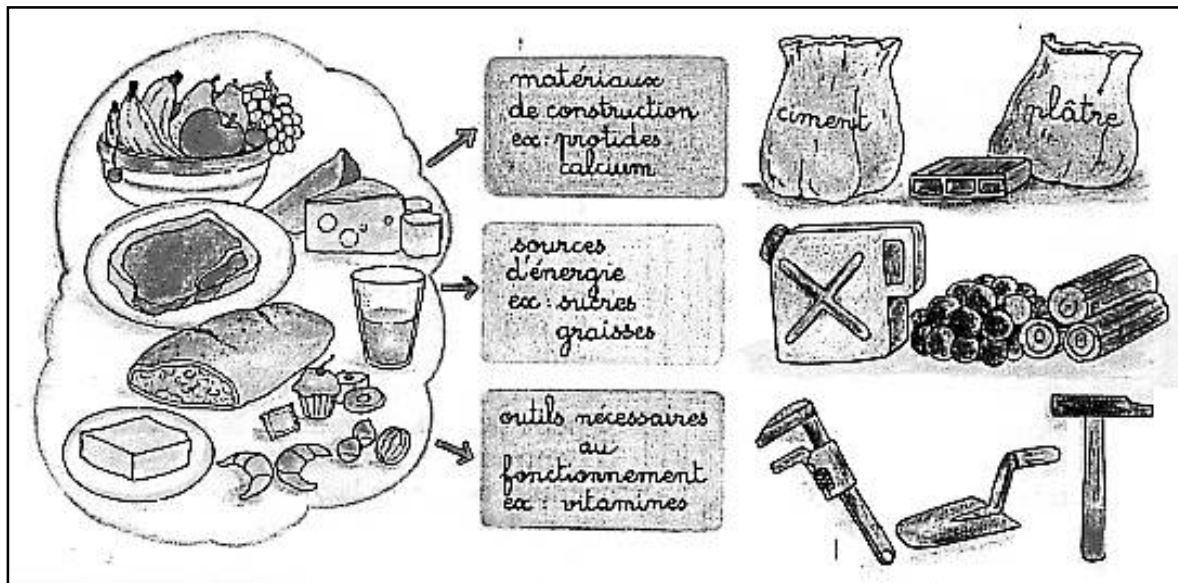 matériaux
de construction
ex: protides
calcium
ciment
plâtre
sources
d'énergie
ex: sucres
graisses
outils nécessaires
au
fonctionnement
ex: vitamines